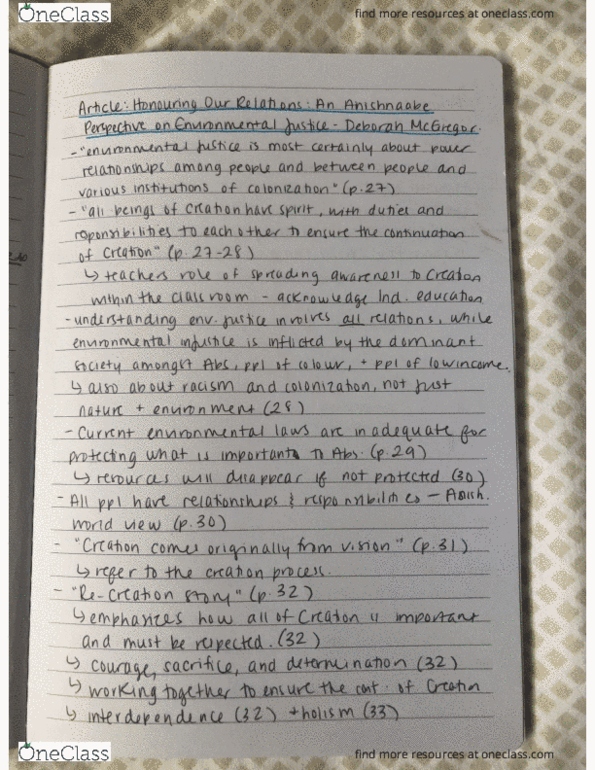 OneClass
find more resources at oneclass.com
Article: Honouring Our Relations: An Anishnaabe
Perspective on Environmental Justice - Deborah McGregor.
- "environmental justice is most certainly about power
relationships among people and between people and
various institutions of colonization" (p.27)
- "all beings of creation have spirit, with duties and
roponsibilities to each other to ensure the continuation
of Creation" (p.27-28)
↳ teachers role of spreading awareness to Creation
within the classroom - acknowledge Ind. education
- understanding env. justice involves all relations, while
environmental injustice is inflicted by the dominant
society amongst Abs, ppl of colour, + ppl of low income.
↳ also about racism and colonization, not just
nature + environment (28)
- Current environmental laws are inadequate for
protecting what is important to Abs. (p.29)
↳ resources will disappear if not protected (30)
- All ppl have relationships & responsibilities - Anish.
world view (p.30)
- "Creation comes originally from vision" (p.31)
↳ refer to the creation process.
- "Re-Creation story" (p.32)
↳ emphasizes how all of Creation is important
and must be respected. (32)
↳ courage, sacrifice, and determination (32)
↳ working together to ensure the cont. of Creation
↳ interdependence (32) + holism (33)
OneClass
find more resources at oneclass.com